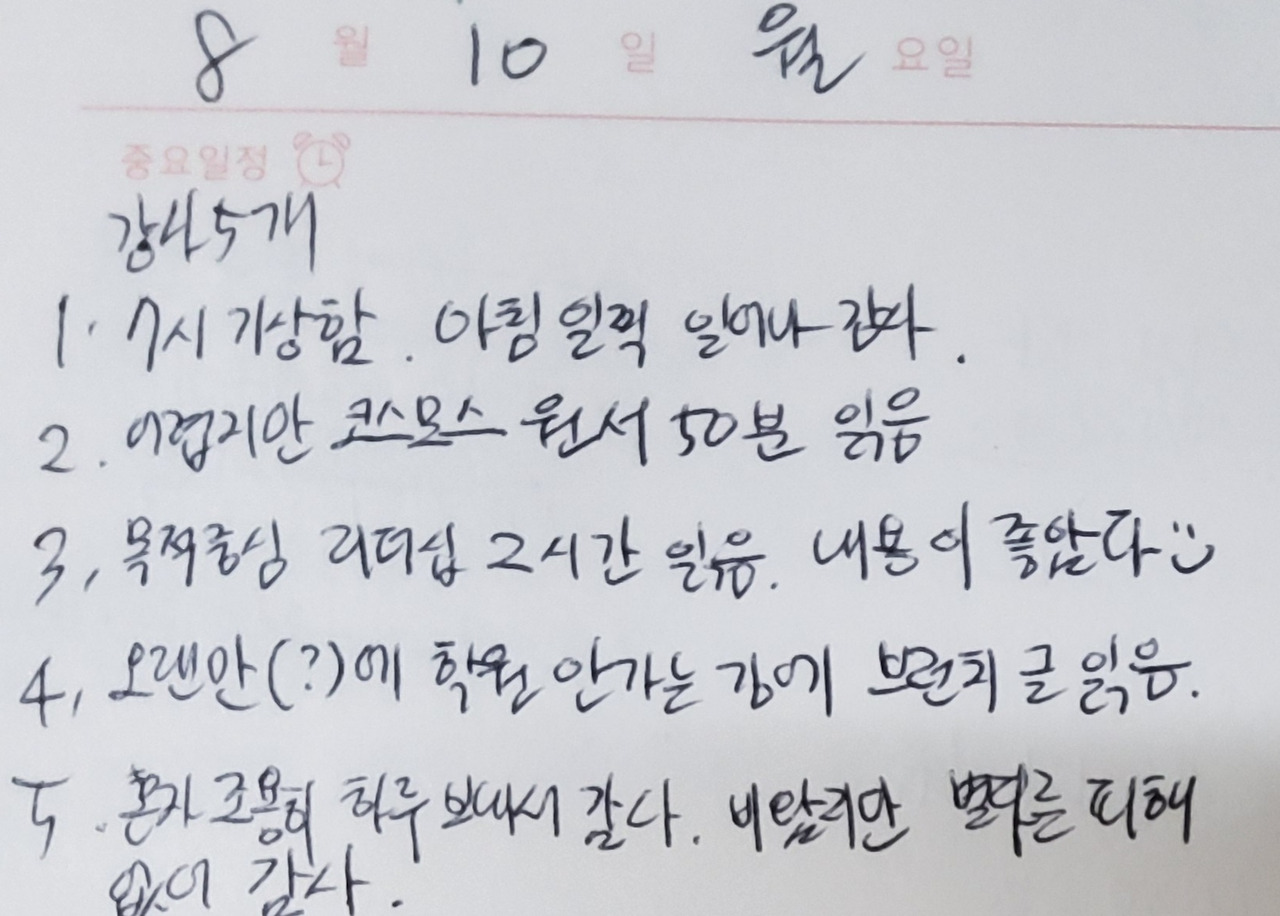 8 월 10 일 월 요일
중요일정
감사 5개
1. 7시 기상함. 아침 일찍 일어나 감사.
2. 어렵지만 코스모스 원서 50분 읽음
3, 목적중심 리더십 2시간 읽음. 내용이 좋았다 :)
4, 오랜만(?)에 학원 안가는 김에 브런치 글 읽음.
5. 혼자 조용히 하루 보내서 감사. 비 왔지만 별다른 피해
없어 감사.